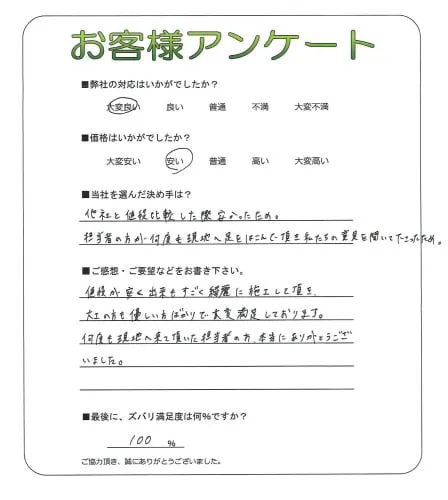 お客様アンケート
■弊社の対応はいかがでしたか？
大変良い 良い 普通 不満 大変不満
■価格はいかがでしたか？
大変安い 安い 普通 高い 大変高い
■当社を選んだ決め手は？
他社と値段比較した際安かったため。
担当者の方が何度も現地へ足をはこんで頂き私たちの意見を聞いて下さったため。
■ご感想・ご要望などをお書き下さい。
値段が安く出来もすごく綺麗に施工して頂き、
大工の方も優しい方ばかりで大変満足しております。
何度も現地へ来て頂いた担当者の方、本当にありがとうござ
いました。
■最後に、ズバリ満足度は何%ですか？
100 %
ご協力頂き、誠にありがとうございました。